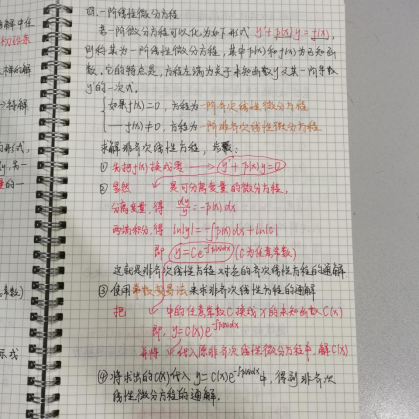 四.一阶线性微分方程
若一阶微分方程可以化为如下形式 y'+p(x)y=f(x),
则称其为一阶线性微分方程,其中p(x)和f(x)为已知函
数,它的特点是,方程左端为关于未知函数y及其一阶导数
y'的一次式.
如果f(x)=0,方程为一阶齐次线性微分方程
f(x)≠0,方程为一阶非齐次线性微分方程
求解非齐次线性方程,步骤:
① 先把f(x)换成零 y'+p(x)y=0
② 显然 是可分离变量的微分方程,
分离变量,得 dy/y=-p(x)dx
两端积分,得 ln|y|=-∫p(x)dx+ln|C|
即 y=Ce^{-∫p(x)dx} (C为任意常数)
这就是非齐次线性方程对应的齐次线性方程的通解
③ 使用常数变易法来求非齐次线性方程的通解
把 中的任意常数C换成x的未知函数C(x)
即,y=C(x)e^{-∫p(x)dx}
并将 代入原非齐次线性微分方程中,解C(x)
④ 将求出的C(x)代入 y=C(x)e^{-∫p(x)dx}中,得到非齐次
线性微分方程的通解.